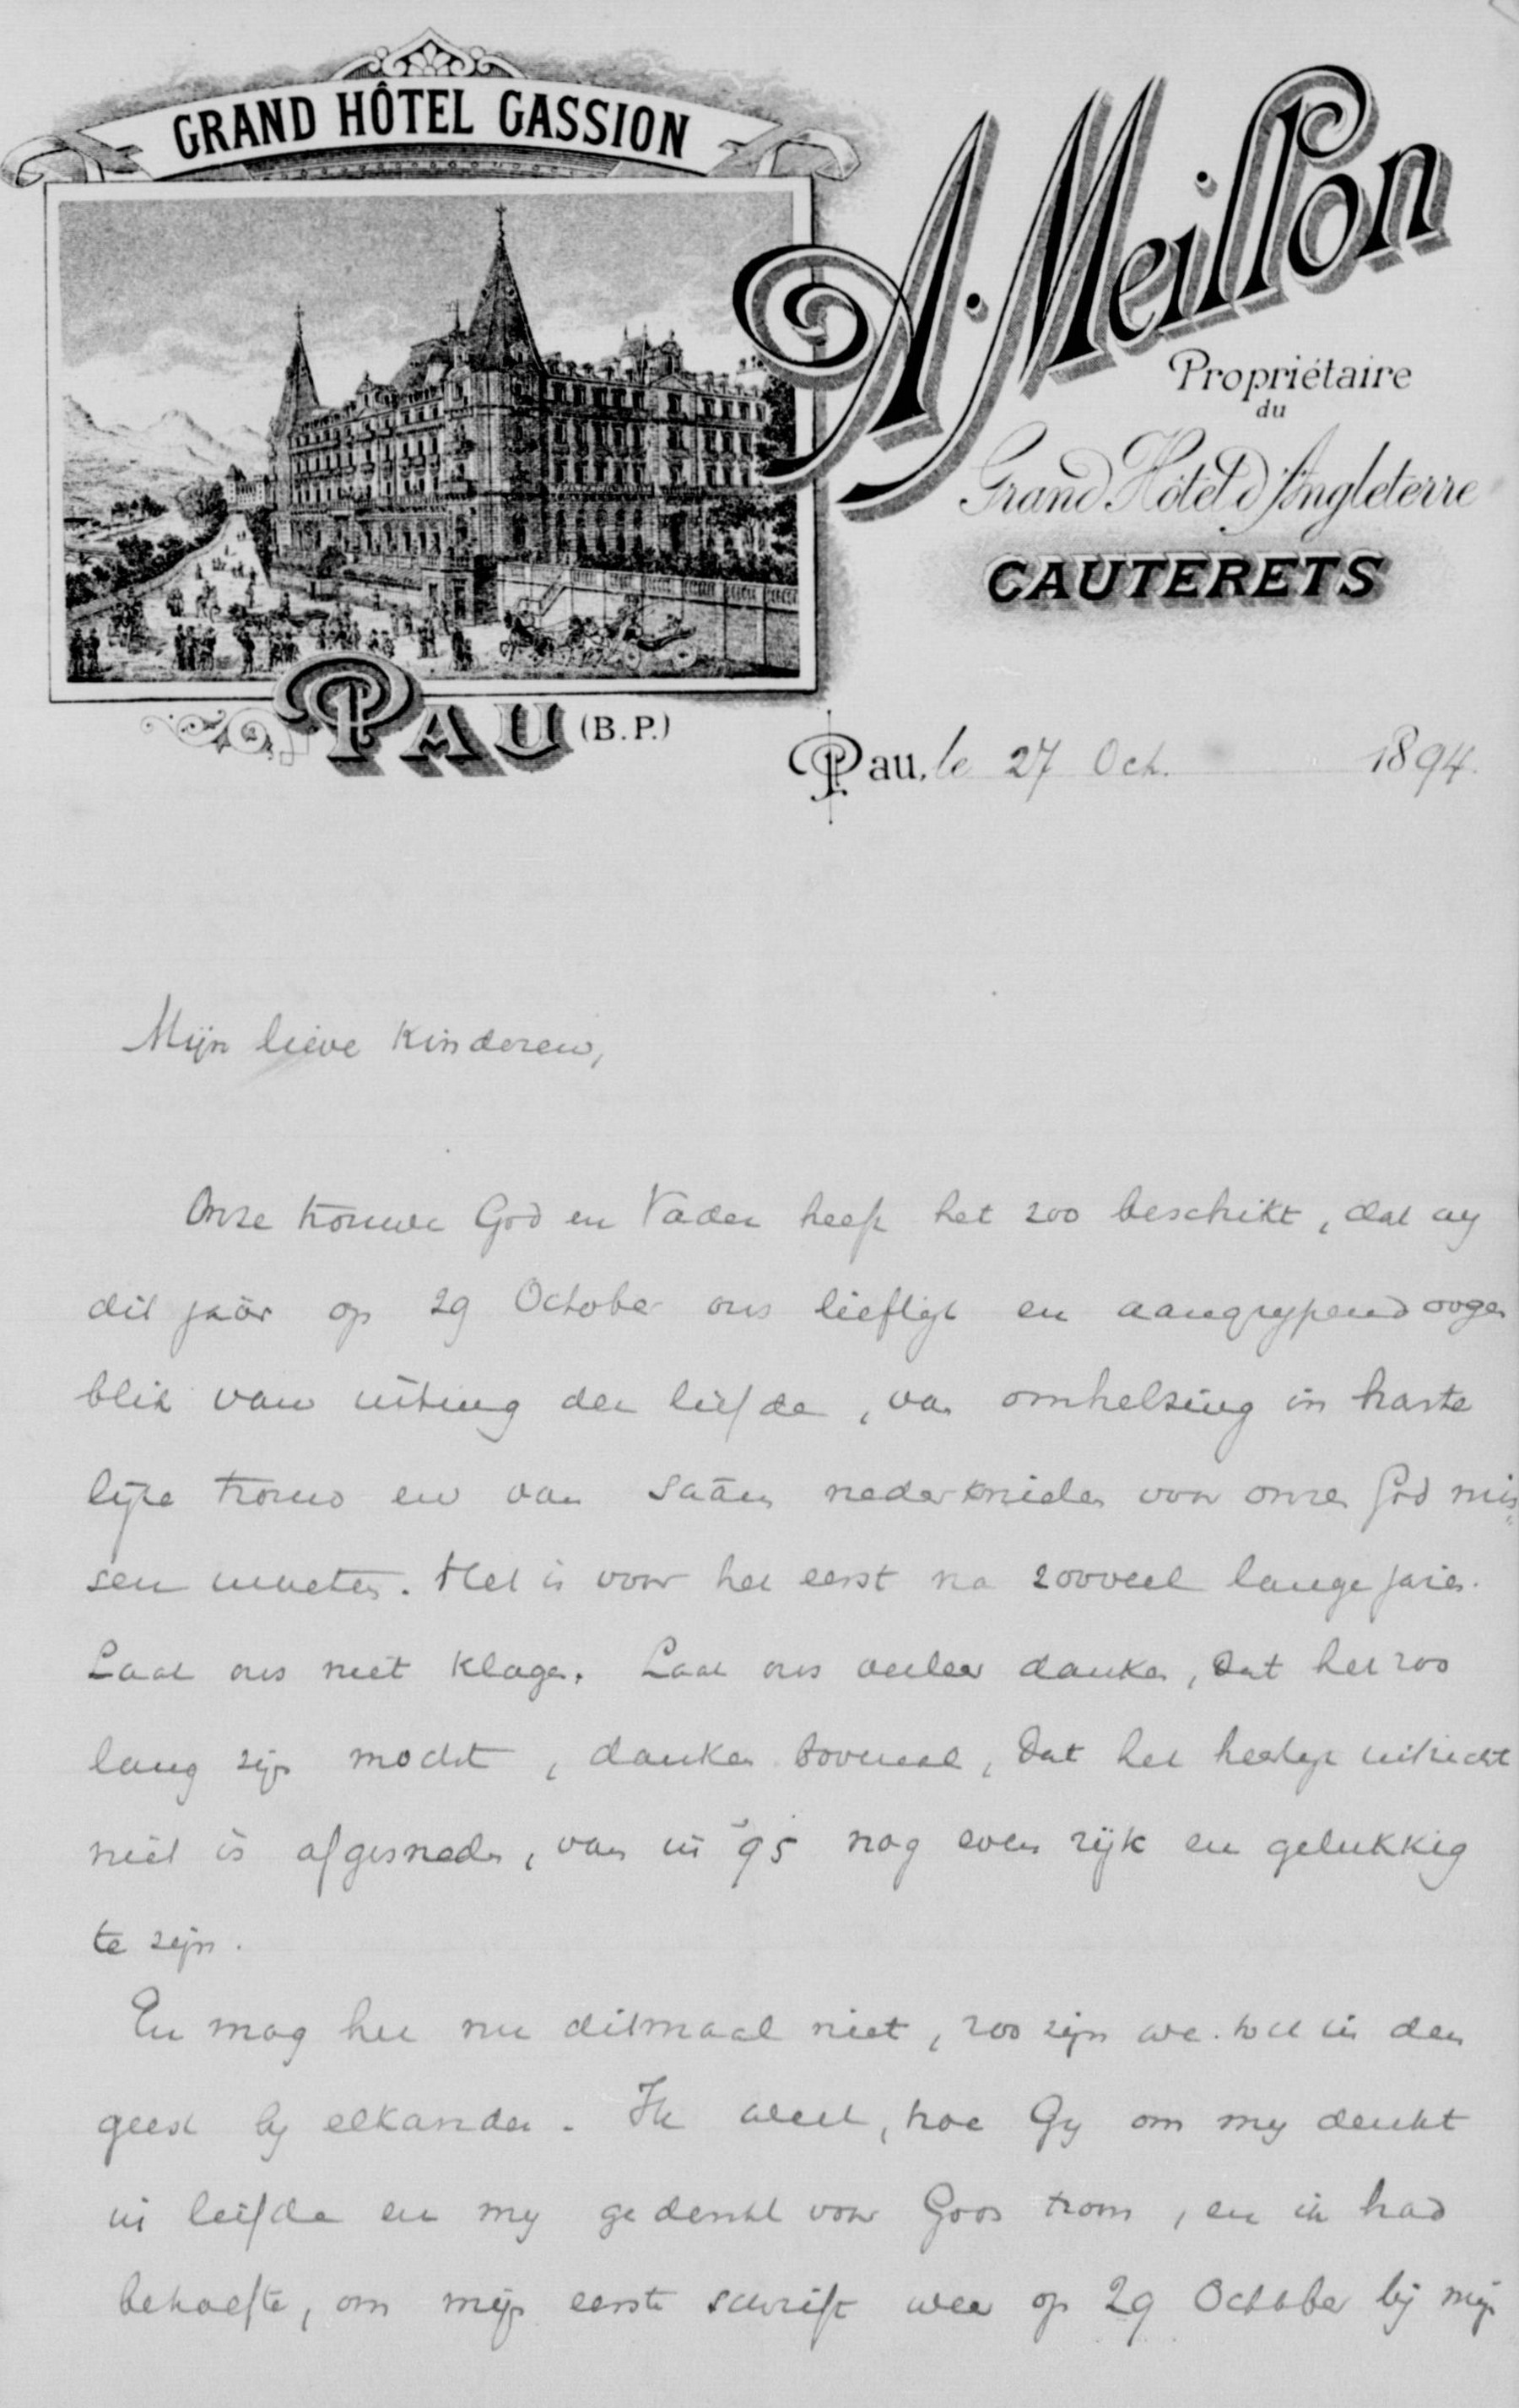 GRAND HÔTEL GASSION
A. Meillon
Propriétaire
du
Grand Hôtel d'Angleterre
CAUTERETS
PAU (B.P.)
Pau, le 27 Oct. 1894.
Mijn lieve Kinderen,
Onze trouwe God en Vader heeft het zoo beschikt, dat wy
dit jaar op 29 October ons lieflyk en aangrypend oogen
blik van uiting der liefde, van omhelzing in harte
lyke trouw en van saâm nederknielen voor onzen God mis„
sen moeten. Het is voor het eerst na zooveel lange jaren.
Laat ons niet klagen. Laat ons veeleer danken, dat het zoo
lang zyn mocht, danken bovenal, dat het heerlyk uitzicht
niet is afgesneden, van in '95 nog even ryk en gelukkig
te zijn.
En mag het nu ditmaal niet, zoo zijn we toch in den
geest by elkander. Ik weet, hoe Gy om my denkt
in liefde en my gedenkt voor Gods troon, en ik had
behoefte, om mijn eerste schrift weer op 29 October bij mijn